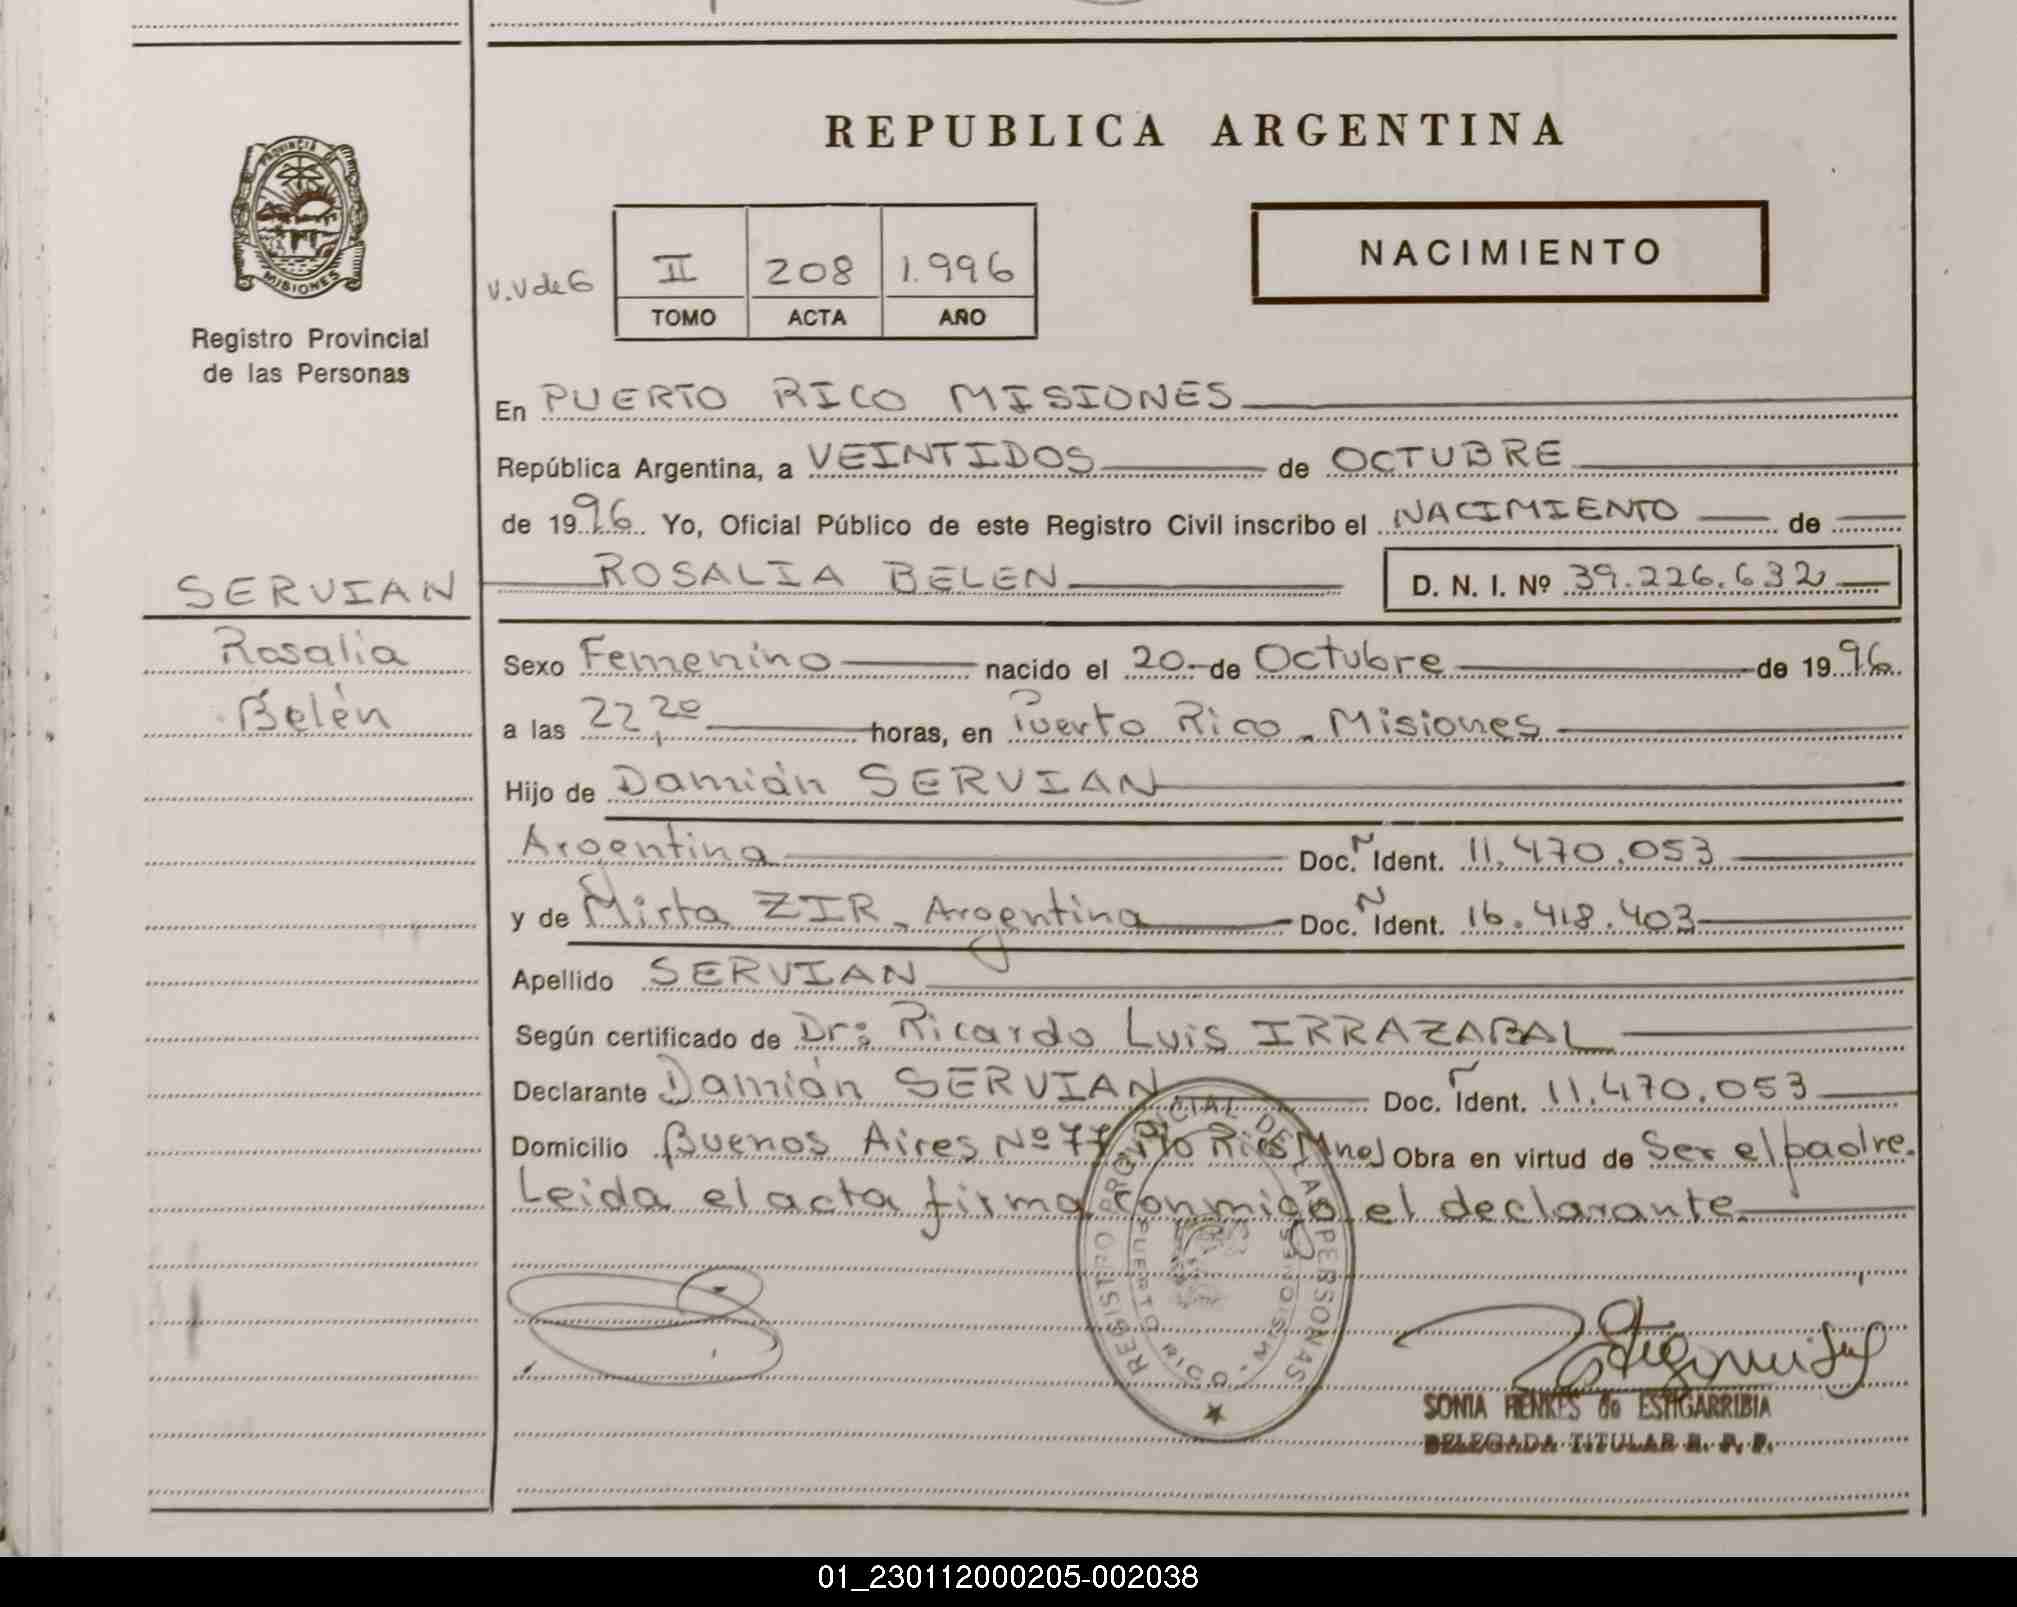 REPUBLICA ARGENTINA
PROVINCIA DE
MISIONES
Registro Provincial
de las Personas
NACIMIENTO
V.V de 6
II 208 1.996
TOMO ACTA AÑO
En PUERTO RICO MISIONES
República Argentina, a VEINTIDOS de OCTUBRE
de 1996 Yo, Oficial Público de este Registro Civil inscribo el NACIMIENTO de
SERVIAN
ROSALIA BELEN D. N. I. Nº 39.226.632
Rosalia
Belén
Sexo Femenino nacido el 20 de Octubre de 1996
a las 22,20 horas, en Puerto Rico - Misiones
Hijo de Damián SERVIAN
Argentina Doc. Ident. 11.470.053
y de Mirta ZIR - Argentina Doc. Ident. 16.418.403
Apellido SERVIAN
Según certificado de Dr: Ricardo Luis IRRAZABAL
Declarante Damián SERVIAN Doc. Ident. 11.470.053
Domicilio Buenos Aires Nº 77 Pto Rico Mnes Obra en virtud de Ser el padre.
Leida el acta firma conmigo el declarante
REGISTRO PROVINCIAL DE LAS PERSONAS
PUERTO RICO - MISIONES
SONIA HENKES de ESTIGARRIBIA
DELEGADA TITULAR R. P. P.
01_230112000205-002038